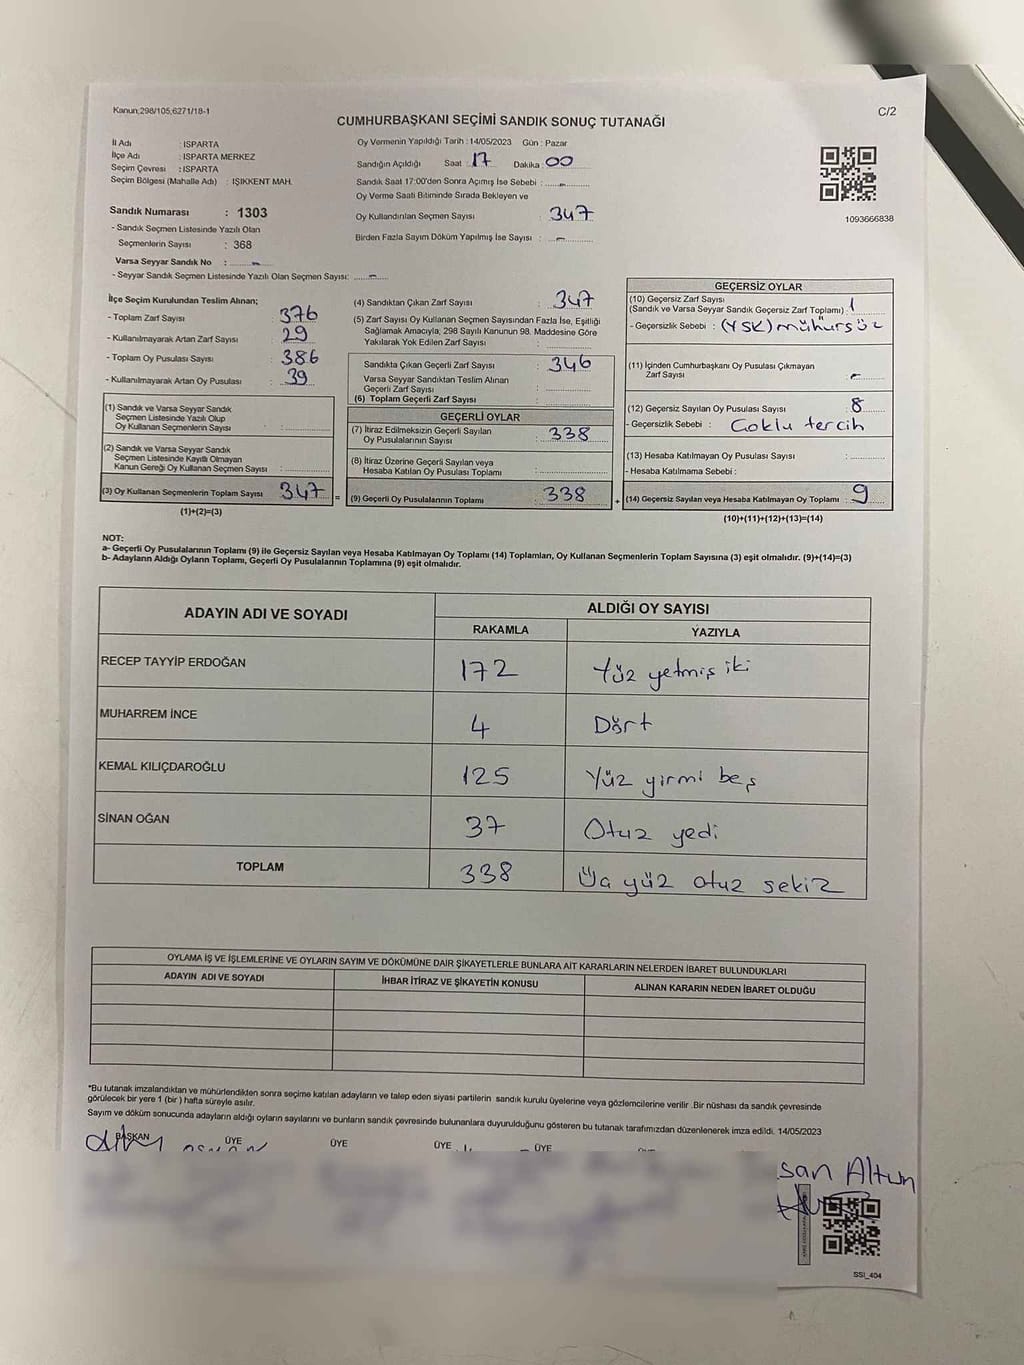 Kanun;298/105;6271/18-1
C/2
CUMHURBAŞKANI SEÇİMİ SANDIK SONUÇ TUTANAĞI
İl Adı : ISPARTA
İlçe Adı : ISPARTA MERKEZ
Seçim Çevresi : ISPARTA
Seçim Bölgesi (Mahalle Adı) : IŞIKKENT MAH.
Oy Vermenin Yapıldığı Tarih : 14/05/2023 Gün : Pazar
Sandığın Açıldığı Saat : 17 Dakika : 00
Sandık Saat 17:00'den Sonra Açımış İse Sebebi : –
Oy Verme Saati Bitiminde Sırada Bekleyen ve
Oy Kullandırılan Seçmen Sayısı : 347
Birden Fazla Sayım Döküm Yapılmış İse Sayısı : –
1093666838
Sandık Numarası : 1303
- Sandık Seçmen Listesinde Yazılı Olan
Seçmenlerin Sayısı : 368
Varsa Seyyar Sandık No : –
- Seyyar Sandık Seçmen Listesinde Yazılı Olan Seçmen Sayısı: –
İlçe Seçim Kurulundan Teslim Alınan;
- Toplam Zarf Sayısı : 376
- Kullanılmayarak Artan Zarf Sayısı : 29
- Toplam Oy Pusulası Sayısı : 386
- Kullanılmayarak Artan Oy Pusulası : 39
(1) Sandık ve Varsa Seyyar Sandık
Seçmen Listesinde Yazılı Olup
Oy Kullanan Seçmenlerin Sayısı :
(2) Sandık ve Varsa Seyyar Sandık
Seçmen Listesinde Kayıtlı Olmayan
Kanun Gereği Oy Kullanan Seçmen Sayısı :
(3) Oy Kullanan Seçmenlerin Toplam Sayısı 347 =
(1)+(2)=(3)
(4) Sandıktan Çıkan Zarf Sayısı : 347
(5) Zarf Sayısı Oy Kullanan Seçmen Sayısından Fazla İse, Eşitliği
Sağlamak Amacıyla, 298 Sayılı Kanunun 98. Maddesine Göre
Yakılarak Yok Edilen Zarf Sayısı :
Sandıkta Çıkan Geçerli Zarf Sayısı : 346
Varsa Seyyar Sandıktan Teslim Alınan
Geçerli Zarf Sayısı :
(6) Toplam Geçerli Zarf Sayısı :
GEÇERLİ OYLAR
(7) İtiraz Edilmeksizin Geçerli Sayılan
Oy Pusulalarının Sayısı : 338
(8) İtiraz Üzerine Geçerli Sayılan veya
Hesaba Katılan Oy Pusulası Toplamı :
(9) Geçerli Oy Pusulalarının Toplamı : 338 +
GEÇERSİZ OYLAR
(10) Geçersiz Zarf Sayısı
(Sandık ve Varsa Seyyar Sandık Geçersiz Zarf Toplamı) : 1
- Geçersizlik Sebebi : (YSK) mühürsüz
(11) İçinden Cumhurbaşkanı Oy Pusulası Çıkmayan
Zarf Sayısı : –
(12) Geçersiz Sayılan Oy Pusulası Sayısı : 8
- Geçersizlik Sebebi : Çoklu tercih
(13) Hesaba Katılmayan Oy Pusulası Sayısı :
- Hesaba Katılmama Sebebi :
(14) Geçersiz Sayılan veya Hesaba Katılmayan Oy Toplamı : 9
(10)+(11)+(12)+(13)=(14)
NOT:
a- Geçerli Oy Pusulalarının Toplamı (9) ile Geçersiz Sayılan veya Hesaba Katılmayan Oy Toplamı (14) Toplamları, Oy Kullanan Seçmenlerin Toplam Sayısına (3) eşit olmalıdır. (9)+(14)=(3)
b- Adayların Aldığı Oyların Toplamı, Geçerli Oy Pusulalarının Toplamına (9) eşit olmalıdır.
ADAYIN ADI VE SOYADI
ALDIĞI OY SAYISI
RAKAMLA YAZIYLA
RECEP TAYYİP ERDOĞAN 172 Yüz yetmiş iki
MUHARREM İNCE 4 Dört
KEMAL KILIÇDAROĞLU 125 Yüz yirmi beş
SİNAN OĞAN 37 Otuz yedi
TOPLAM 338 Üç yüz otuz sekiz
OYLAMA İŞ VE İŞLEMLERİNE VE OYLARIN SAYIM VE DÖKÜMÜNE DAİR ŞİKAYETLERLE BUNLARA AİT KARARLARIN NELERDEN İBARET BULUNDUKLARI
ADAYIN ADI VE SOYADI İHBAR İTİRAZ VE ŞİKAYETİN KONUSU ALINAN KARARIN NEDEN İBARET OLDUĞU
*Bu tutanak imzalandıktan ve mühürlendikten sonra seçime katılan adayların ve talep eden siyasi partilerin sandık kurulu üyelerine veya gözlemcilerine verilir .Bir nüshası da sandık çevresinde
görülecek bir yere 1 (bir ) hafta süreyle asılır.
Sayım ve döküm sonucunda adayların aldığı oyların sayılarını ve bunların sandık çevresinde bulunanlara duyurulduğunu gösteren bu tutanak tarafımızdan düzenlenerek imza edildi. 14/05/2023
BAŞKAN ÜYE ÜYE ÜYE ÜYE
san Altun
SSI_404